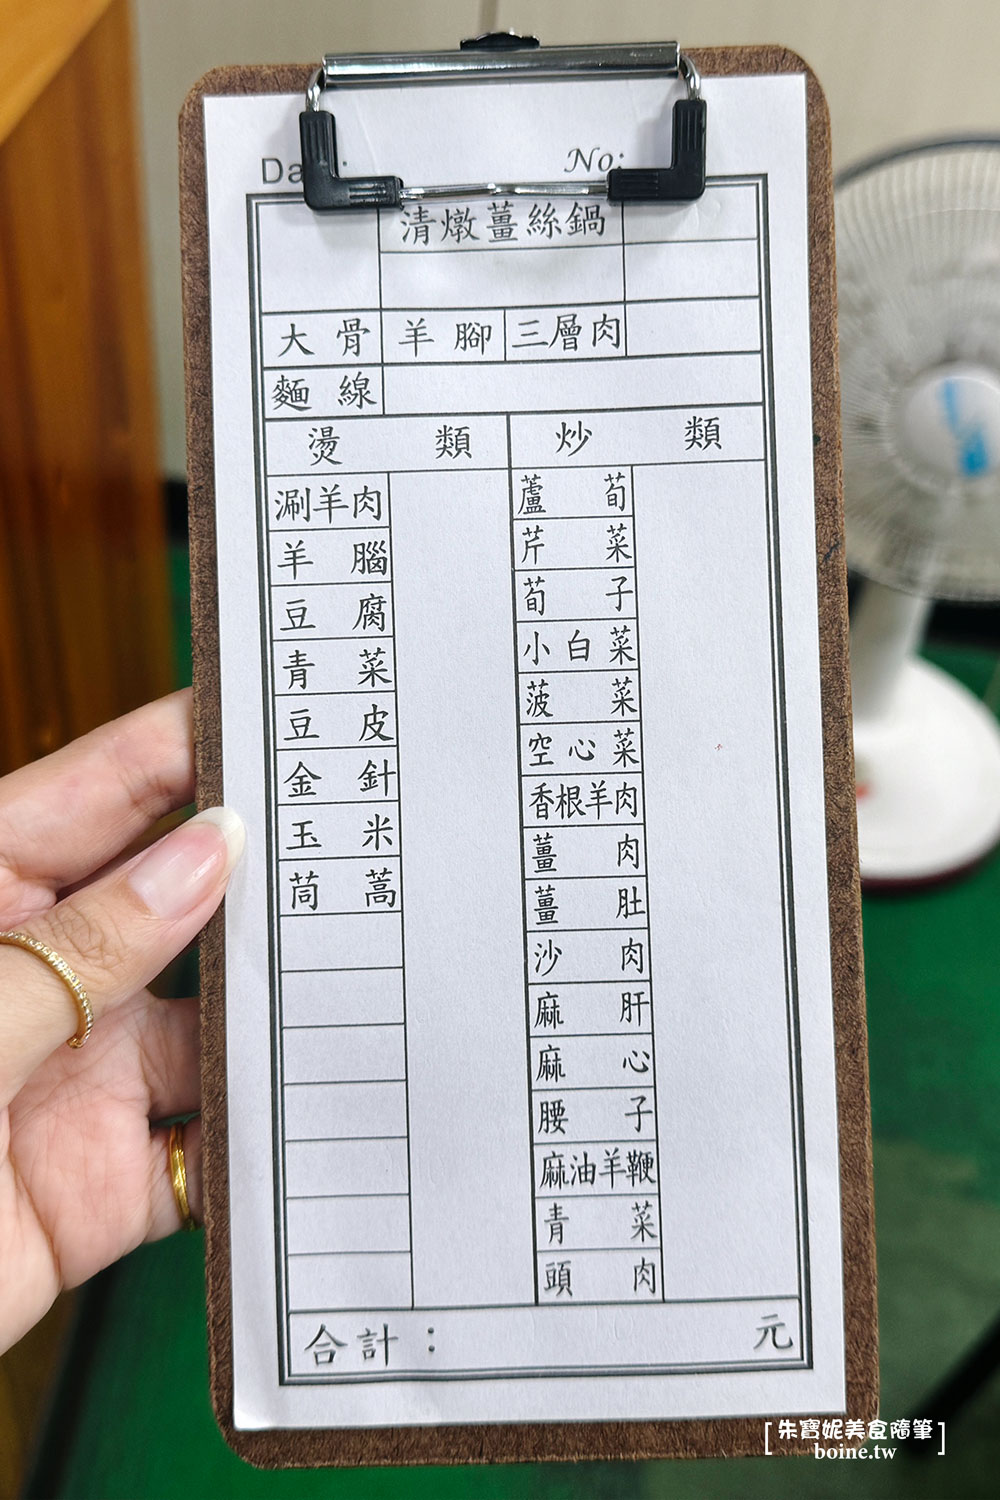 No:
清燉薑絲鍋
大骨 羊腳 三層肉
麵線
燙類 炒類
涮羊肉 蘆荀
羊腦 芹菜
豆腐 荀子
青菜 小白菜
豆皮 菠菜
金針 空心菜
玉米 香根羊肉
茼蒿 薑肉
薑肚
沙肉
麻肝
麻心
腰子
麻油羊鞭
青菜
頭肉
合計： 元
朱寶妮美食隨筆
boine.tw